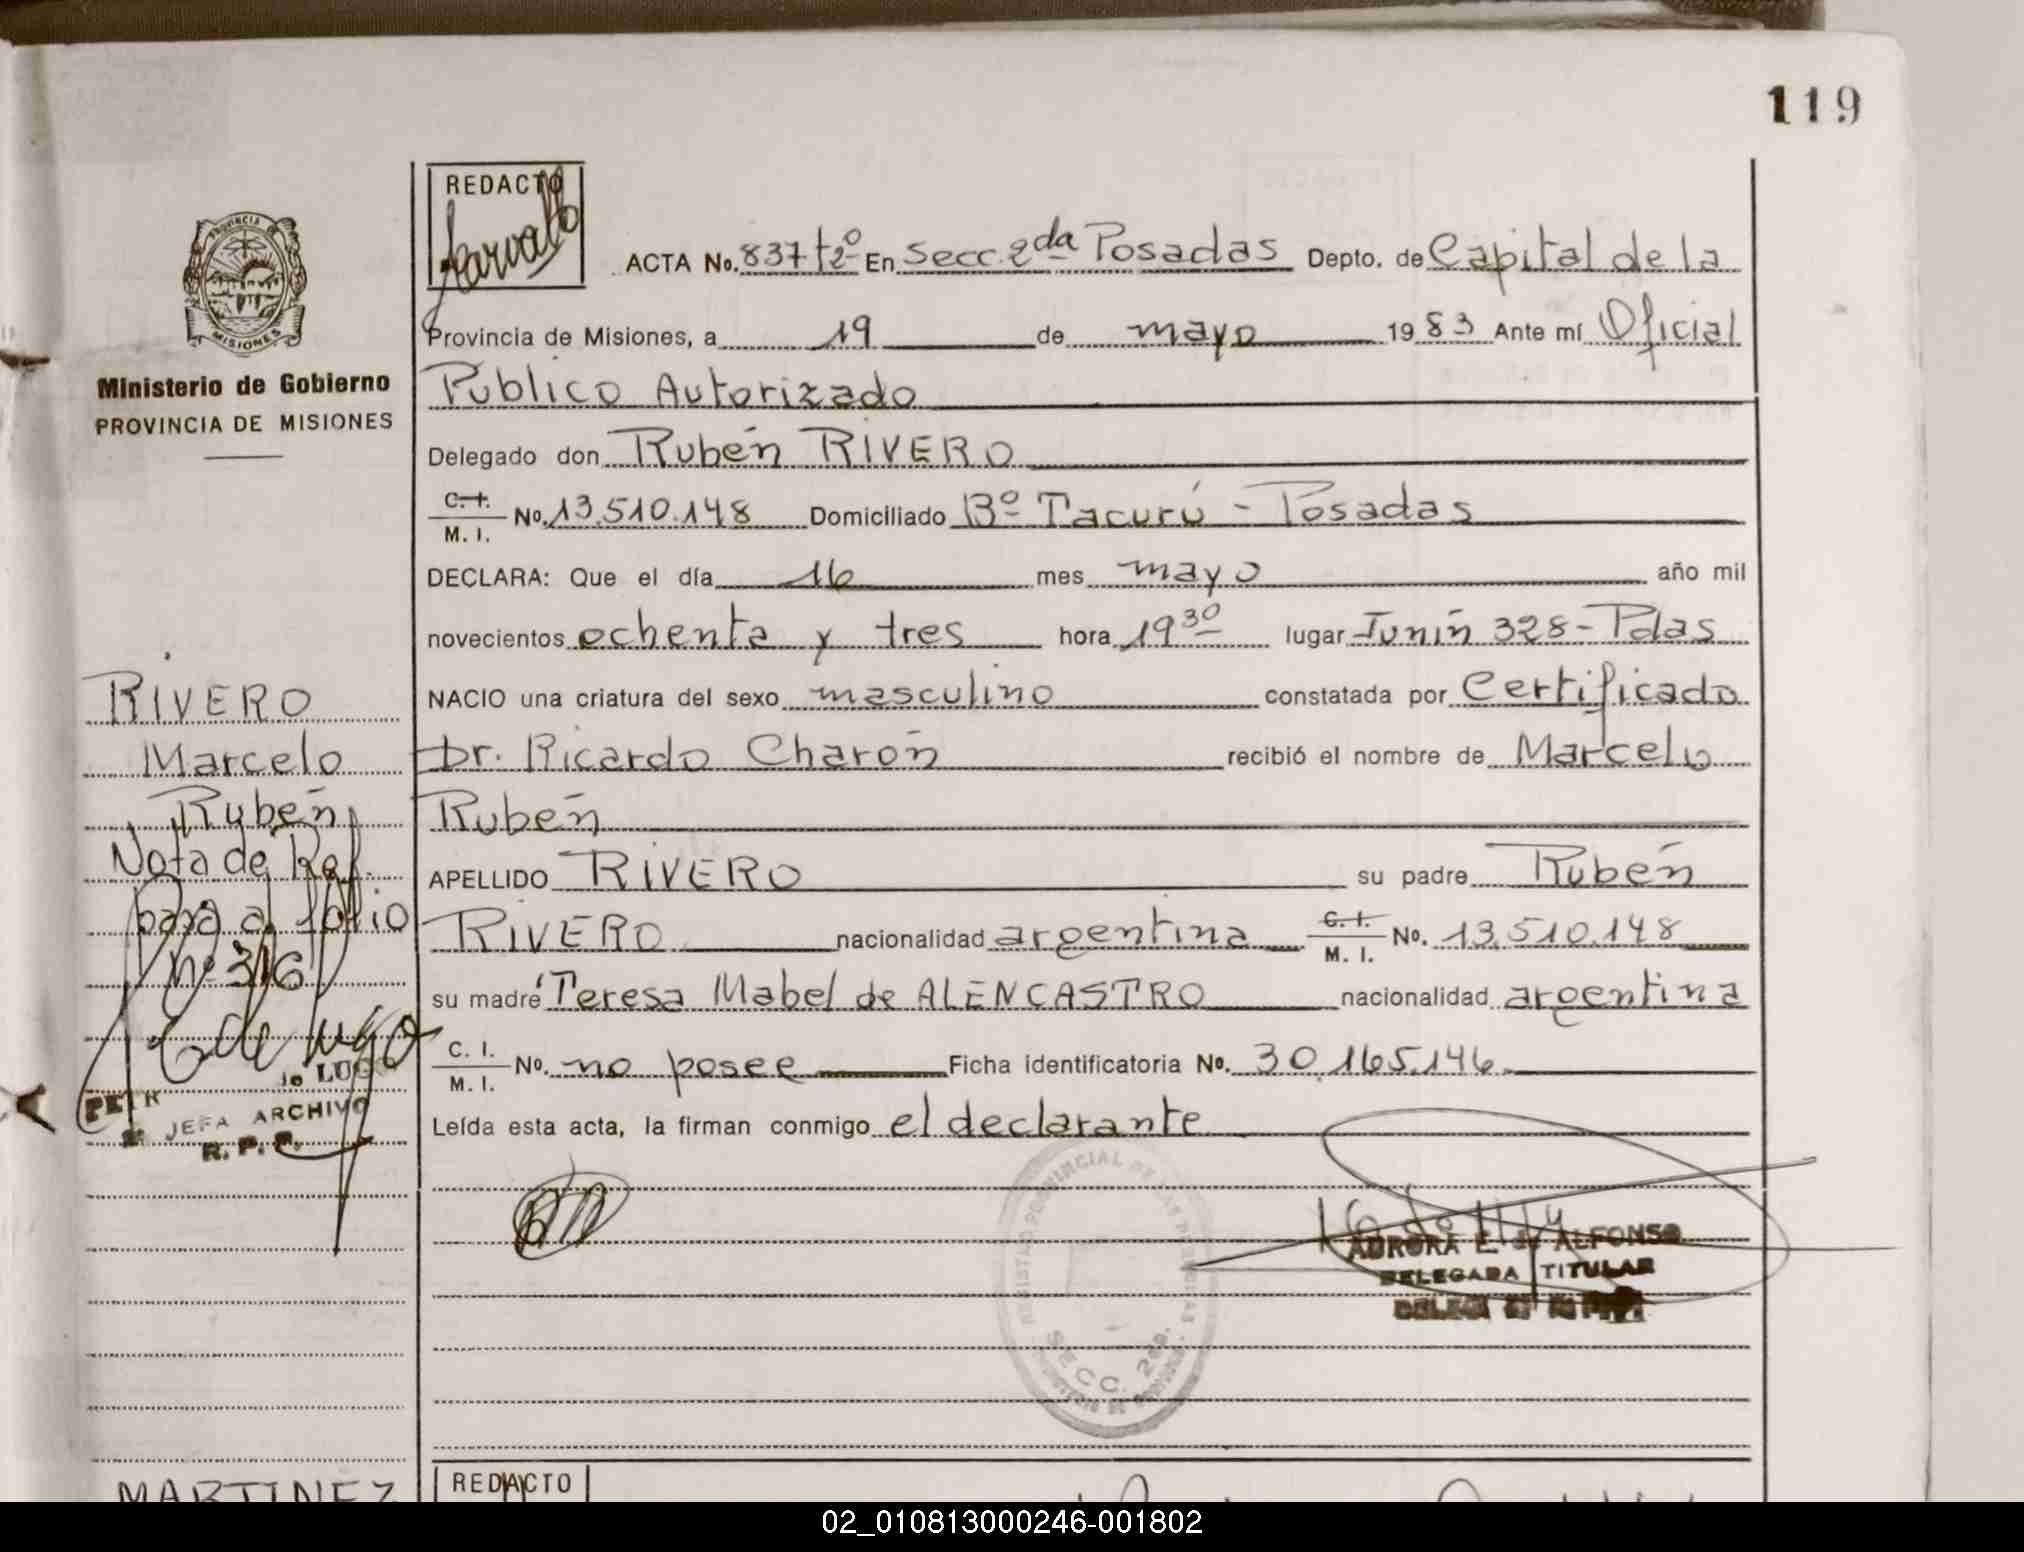 119
REDACTO
ACTA No. 837 t2º En Secc. 2da Posadas Depto. de Capital de la
PROVINCIA DE
MISIONES
Provincia de Misiones, a 19 de mayo 1983 Ante mí Oficial
Ministerio de Gobierno
PROVINCIA DE MISIONES
Público Autorizado
Delegado don Rubén RIVERO
C. I. M. I. No. 13.510.148 Domiciliado Bº Tacurú - Posadas
DECLARA: Que el día 16 mes mayo año mil
novecientos ochenta y tres hora 19 30 lugar Junín 328 - Pdas
NACIO una criatura del sexo masculino constatada por Certificado
Dr. Ricardo Charón recibió el nombre de Marcelo
Rubén
APELLIDO RIVERO su padre Rubén
RIVERO nacionalidad argentina C. I. M. I. No. 13.510.148
su madre Teresa Mabel de ALENCASTRO nacionalidad argentina
C. I. M. I. No. no posee Ficha identificatoria No. 30.165.146
Leída esta acta, la firman conmigo el declarante
RIVERO
Marcelo
Rubén
Nota de Ref.
para al folio
nº 316
LUGO
JEFA ARCHIVO
R. P. P.
REGISTRO PROVINCIAL DE LAS PERSONAS
SECC. 2da.
AURORA E. de ALFONSO
DELEGADA TITULAR
MARTINEZ
REDACTO
02_010813000246-001802